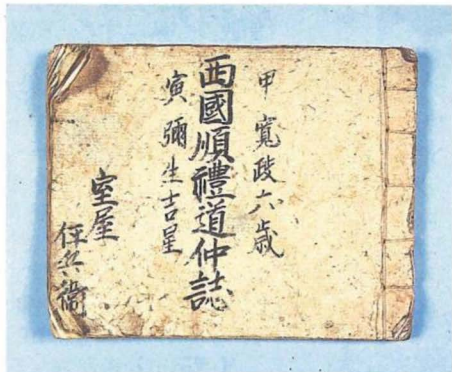 甲 寛政六歳
西國順禮道仲誌
寅 彌生吉星
室屋
伊兵衞